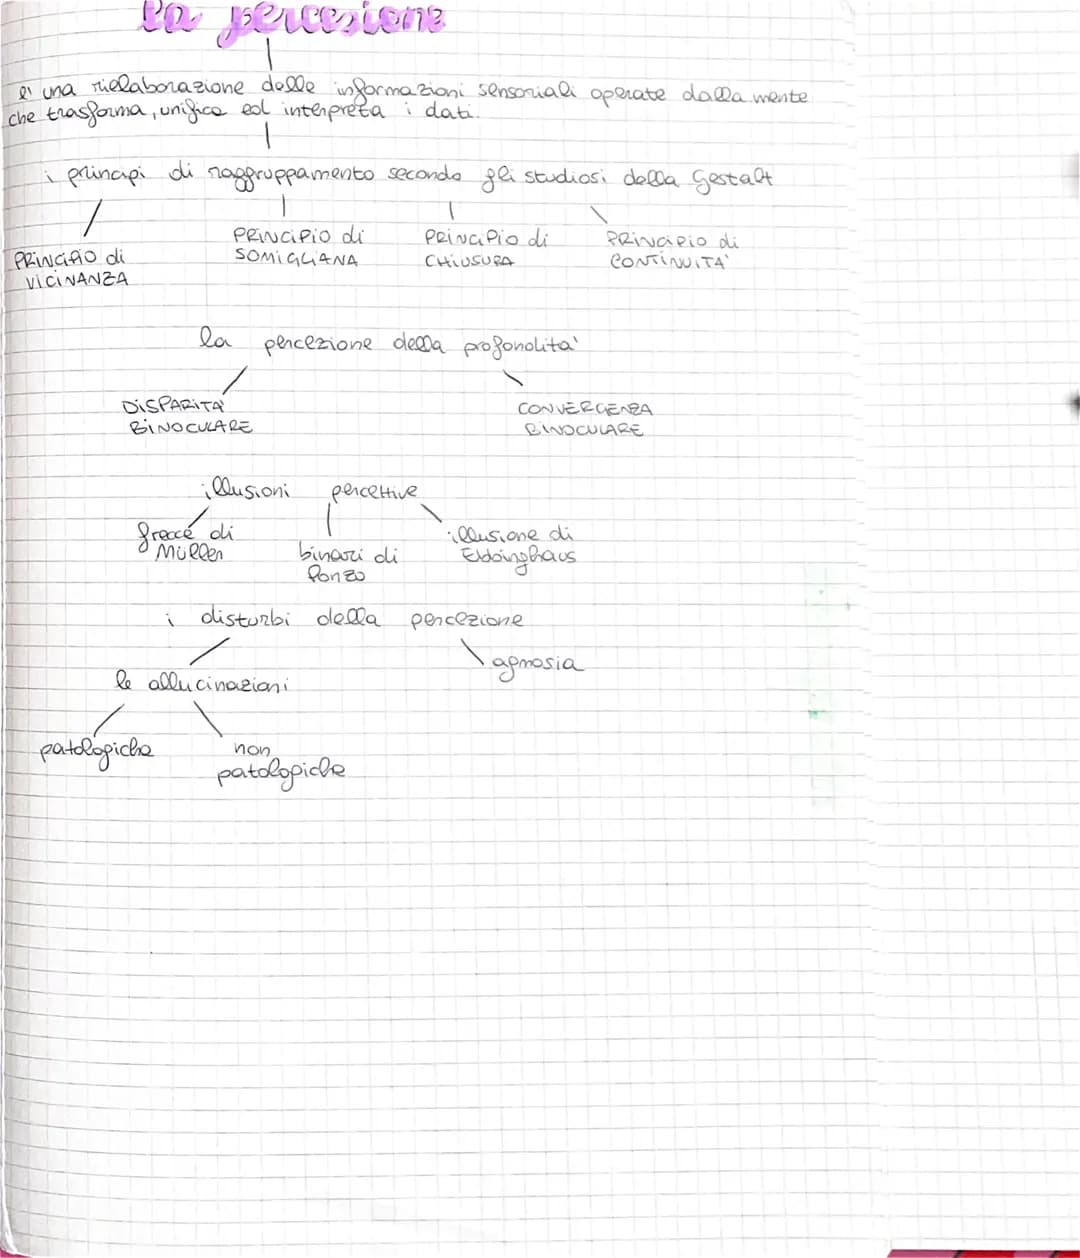 la percezione
e' una rielaborazione delle informazioni sensoriali operate dalla mente
che trasforma, unifica ed interpreta i dati.
i principi di raggruppamento secondo gli studiosi della Gestalt
PRINCIPIO di
VICINANZA
PRINCIPIO di
SOMIGLIANA
PRINCIPIO di
CHIUSURA
PRINCIPIO di
CONTINUITA'
la percezione della profondita'
DISPARITA'
BINOCULARE
CONVERGENZA
BINOCULARE
illusioni percettive
frecce di
Müller
binari di
Ponzo
illusione di
Ebbinghaus
i disturbi della percezione
le allucinazioni
agnosia
patologiche
non
patologiche